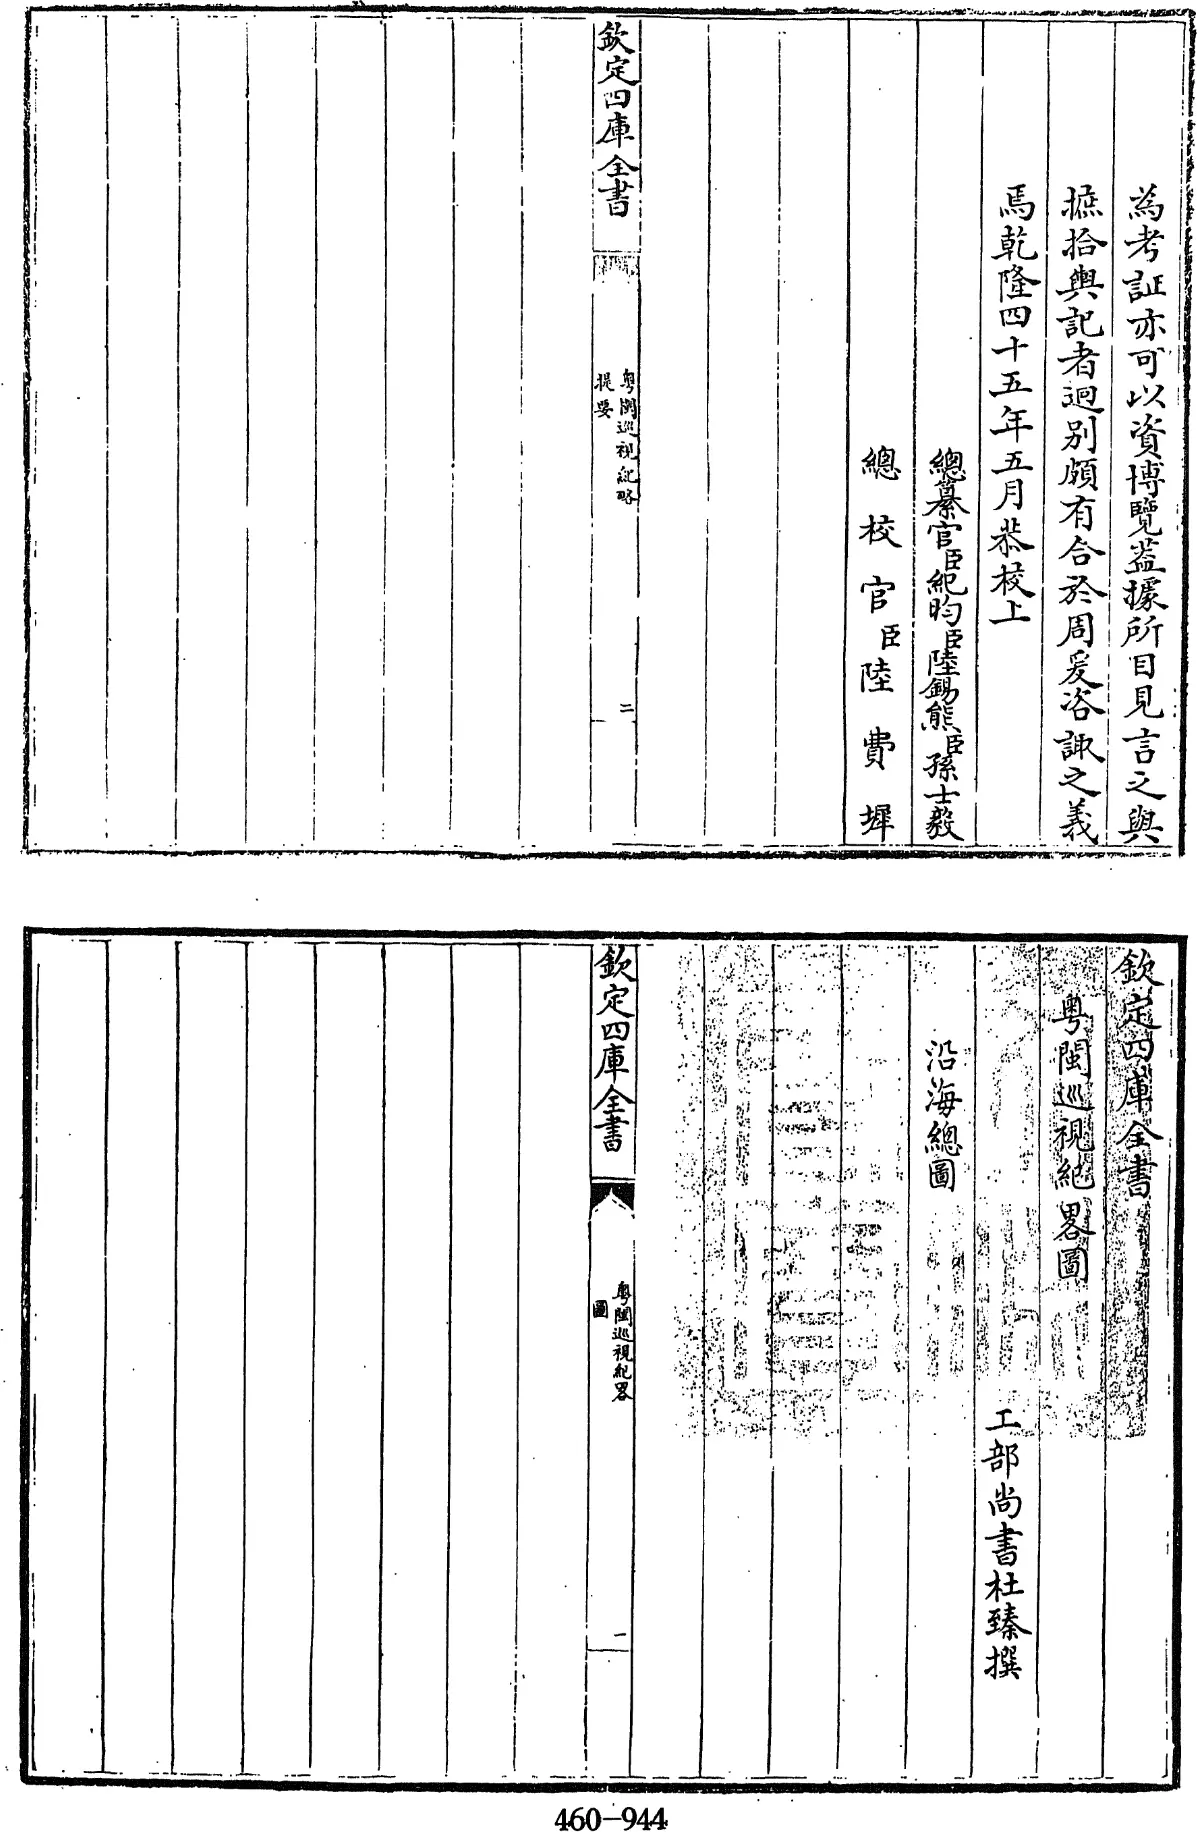 為考証亦可以資博覽葢據所目見言之與
摭拾輿記者迥别頗有合於周爰咨諏之義
焉乾隆四十五年五月恭校上
總纂官臣紀昀臣陸錫熊臣孫士毅
總校官臣陸費墀
欽定四庫全書
粤閩巡視紀略
提要
二
欽定四庫全書
粤閩巡視紀畧圖
工部尚書杜臻撰
沿海總圖
欽定四庫全書
粤閩巡視紀畧
圖
一
460-944